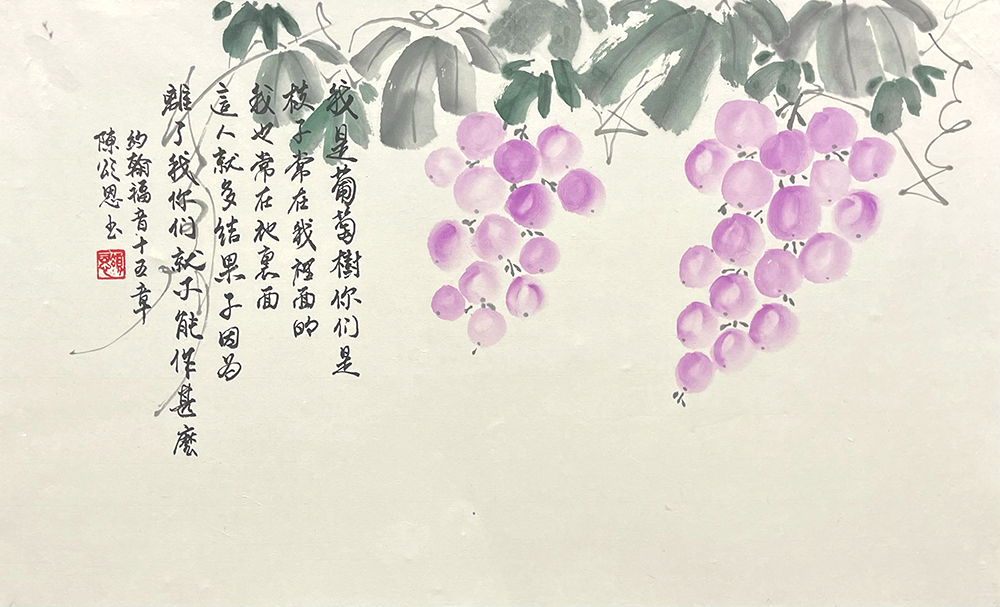 我是葡萄樹你们是
枝子常在我裡面的
我也常在他裏面
這人就多結果子因为
離了我你们就不能作甚麼
約翰福音十五章
陳颂恩书